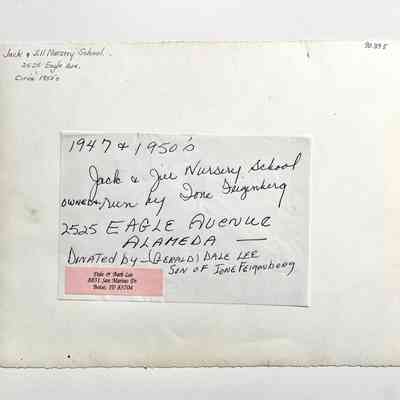 Jack & Jill Nursery School.
2525 Eagle Ave.
Circa 1950's
90.39.5
1947 & 1950's
Jack & Jill Nursery School
OWNED, run by Ione Feigenberg
2525 EAGLE AVENUE
ALAMEDA —
DONATED by - (GERALD) DALE LEE
SON OF IONE FEIGENBERG
Dale & Barb Lee
8851 San Marino Dr.
Boise, ID 83704